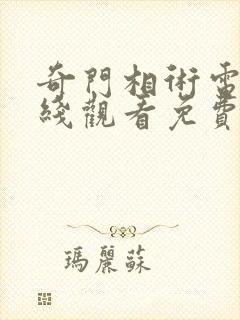 奇門相術電
綫觀看免費
瑪麗蘇